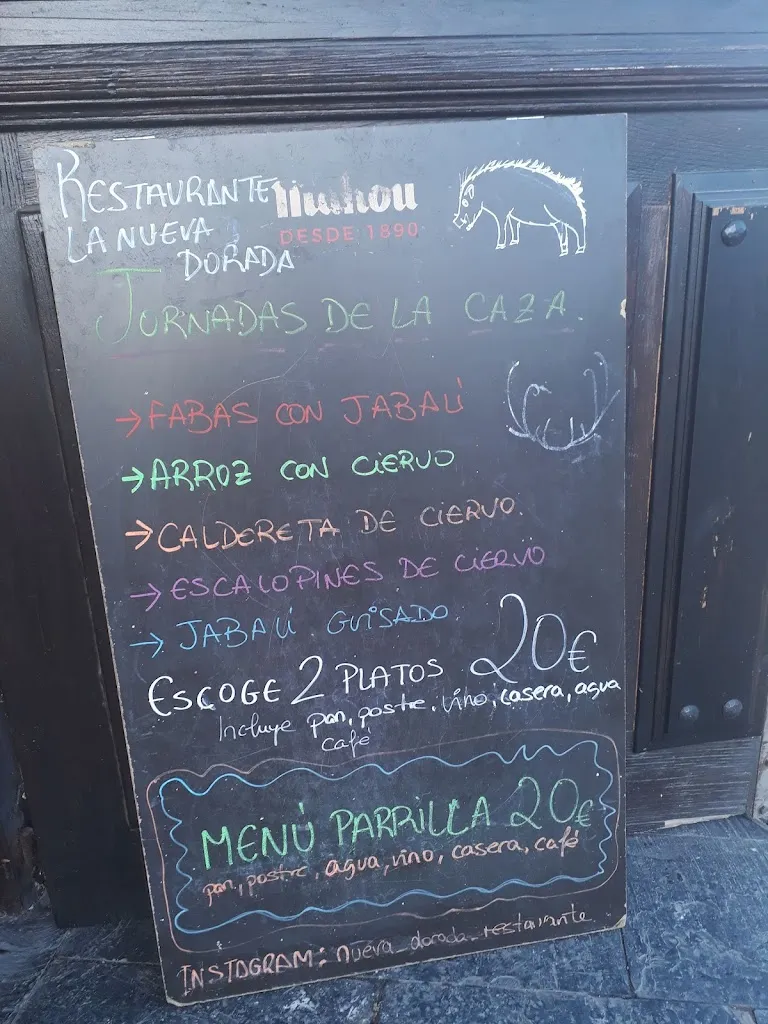 RESTAURANTE
LA NUEVA
DORADA
mahou
DESDE 1890
JORNADAS DE LA CAZA.
→ FABAS CON JABALÍ
→ ARROZ CON CIERVO
→ CALDERETA DE CIERVO.
→ ESCALOPINES DE CIERVO
→ JABALÍ GUISADO
ESCOGE 2 PLATOS 20€
Incluye pan, postre, vino, casera, agua
café
MENÚ PARRILLA 20€
pan, postre, agua, vino, casera, café
INSTAGRAM: nueva_dorada_restaurante